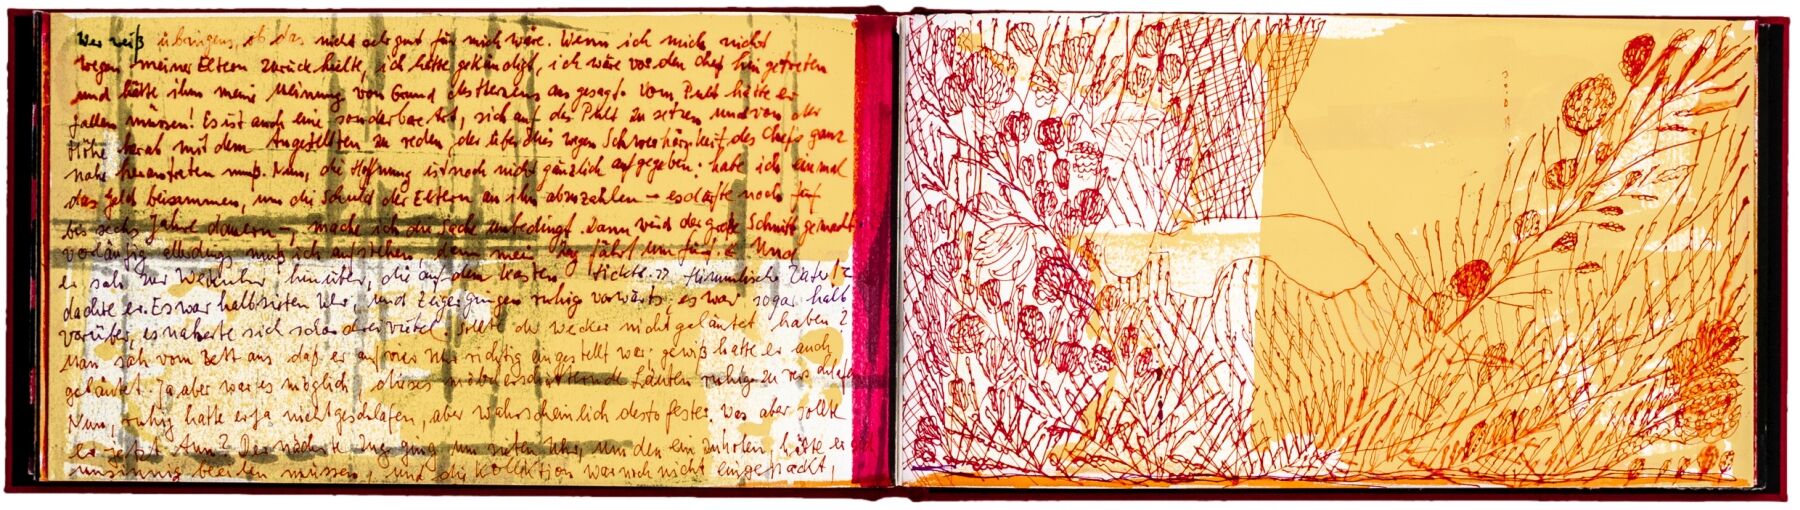 Wer weiß übrigens, ob das nicht sehr gut für mich wäre. Wenn ich mich nicht
wegen meiner Eltern zurückhielte, ich hätte gekündigt, ich wäre vor den Chef hin getreten
und hätte ihm meine Meinung von Grund des Herzens aus gesagt. Vom Pult hätte er
fallen müssen! Es ist auch eine sonderbare Art, sich auf das Pult zu setzen und von der
Höhe herab mit dem Angestellten zu reden, der überdies wegen Schwerhörigkeit des Chefs ganz
nahe herantreten muß. Nun, die Hoffnung ist noch nicht gänzlich aufgegeben; habe ich einmal
das Geld beisammen, um die Schuld der Eltern an ihn abzuzahlen – es dürfte noch fünf
bis sechs Jahre dauern –, mache ich die Sache unbedingt. Dann wird der große Schnitt gemacht.
vorläufig allerdings muß ich aufstehen, denn mein Zug fährt um fünf.« Und
er sah zur Weckuhr hinüber, die auf dem Kasten tickte. »Himmlischer Vater!«
dachte er. Es war halb sieben Uhr, und Zeiger gingen ruhig vorwärts, es war sogar halb
vorüber, es näherte sich schon dreiviertel. Sollte der Wecker nicht geläutet haben?
Man sah vom Bett aus, daß er auf vier Uhr richtig eingestellt war; gewiß hatte er auch
geläutet. Ja aber war es möglich, dieses möbelerschütternde Läuten ruhig zu verschlafen
Nun, ruhig hatte er ja nicht geschlafen, aber wahrscheinlich desto fester. Was aber sollte
er jetzt tun? Der nächste Zug ging um sieben Uhr, um den einzuholen, hätte er sich
unsinnig beeilen müssen, und die Kollektion war noch nicht eingepackt,